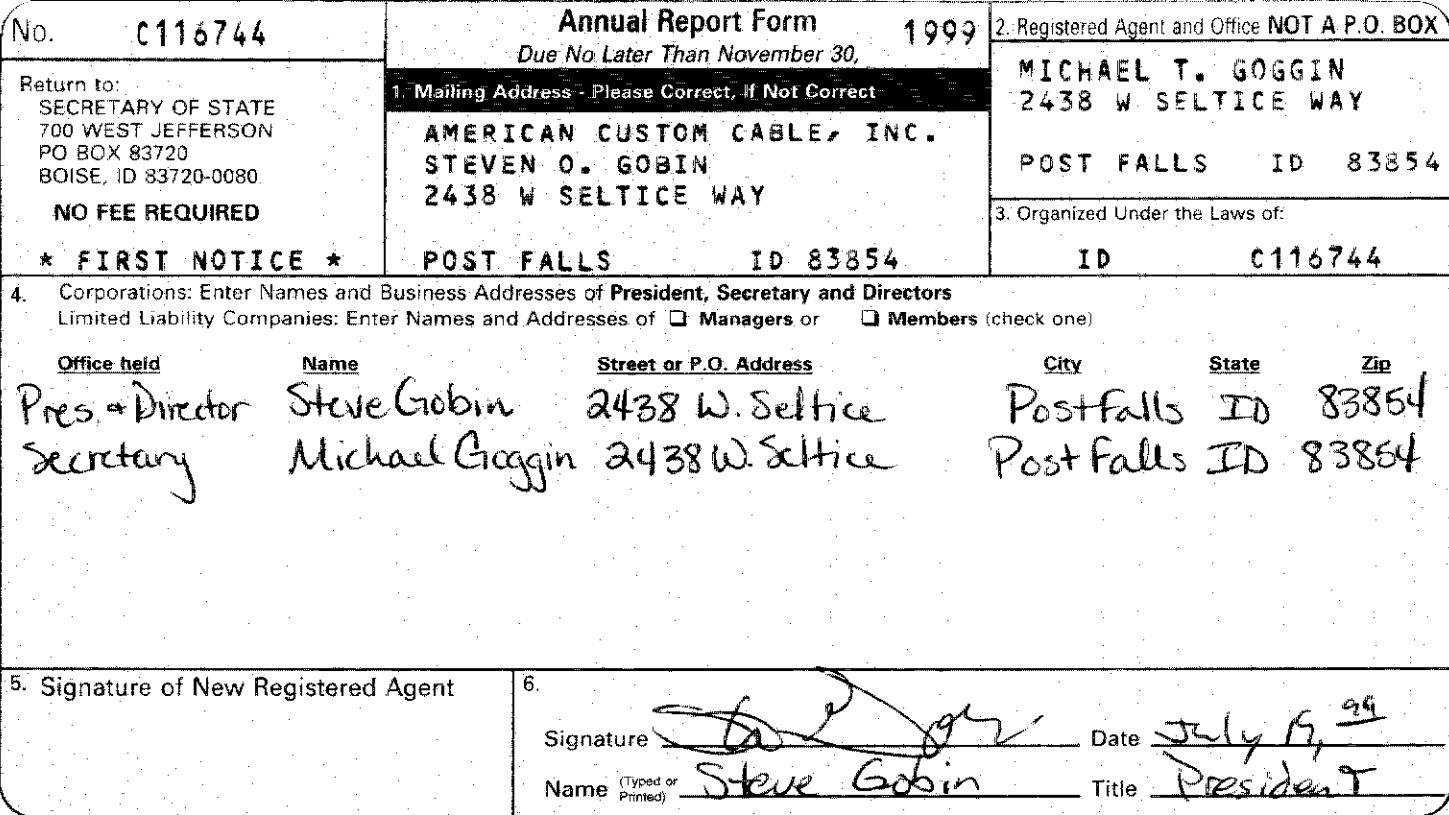 No. C116744
Return to:
SECRETARY OF STATE
700 WEST JEFFERSON
PO BOX 83720
BOISE, ID 83720-0080
NO FEE REQUIRED
* FIRST NOTICE *
Annual Report Form 1999
Due No Later Than November 30,
1. Mailing Address - Please Correct, If Not Correct
AMERICAN CUSTOM CABLE, INC.
STEVEN O. GOBIN
2438 W SELTICE WAY
POST FALLS ID 83854
2. Registered Agent and Office NOT A P.O. BOX
MICHAEL T. GOGGIN
2438 W SELTICE WAY
POST FALLS ID 83854
3. Organized Under the Laws of:
ID C116744
4. Corporations: Enter Names and Business Addresses of President, Secretary and Directors
Limited Liability Companies: Enter Names and Addresses of ❏ Managers or ❏ Members (check one)
Office held Name Street or P.O. Address City State Zip
Pres. + Director Steve Gobin 2438 W. Seltice Post Falls ID 83854
Secretary Michael Goggin 2438 W. Seltice Post Falls ID 83854
5. Signature of New Registered Agent
6.
Signature Date July 19, 99
Name (Typed or Printed) Steve Gobin Title President